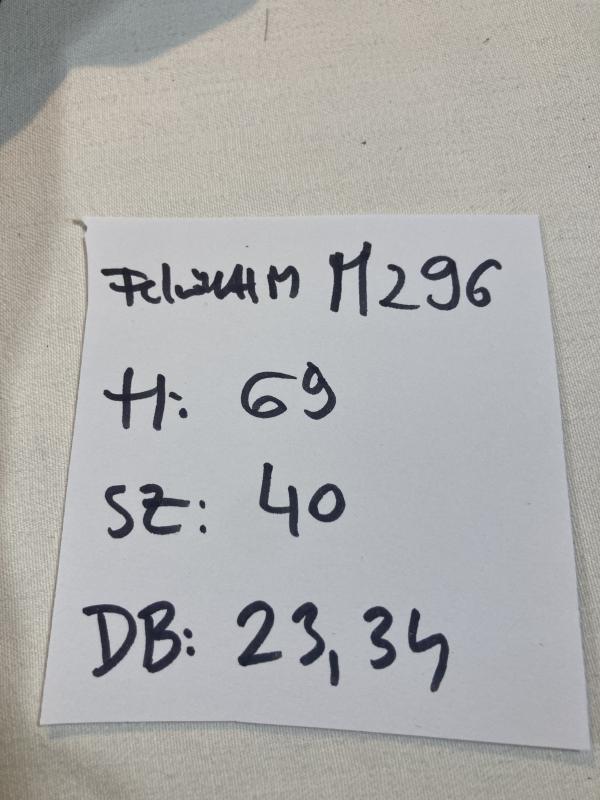 M296
H: 69
SZ: 40
DB: 23, 34